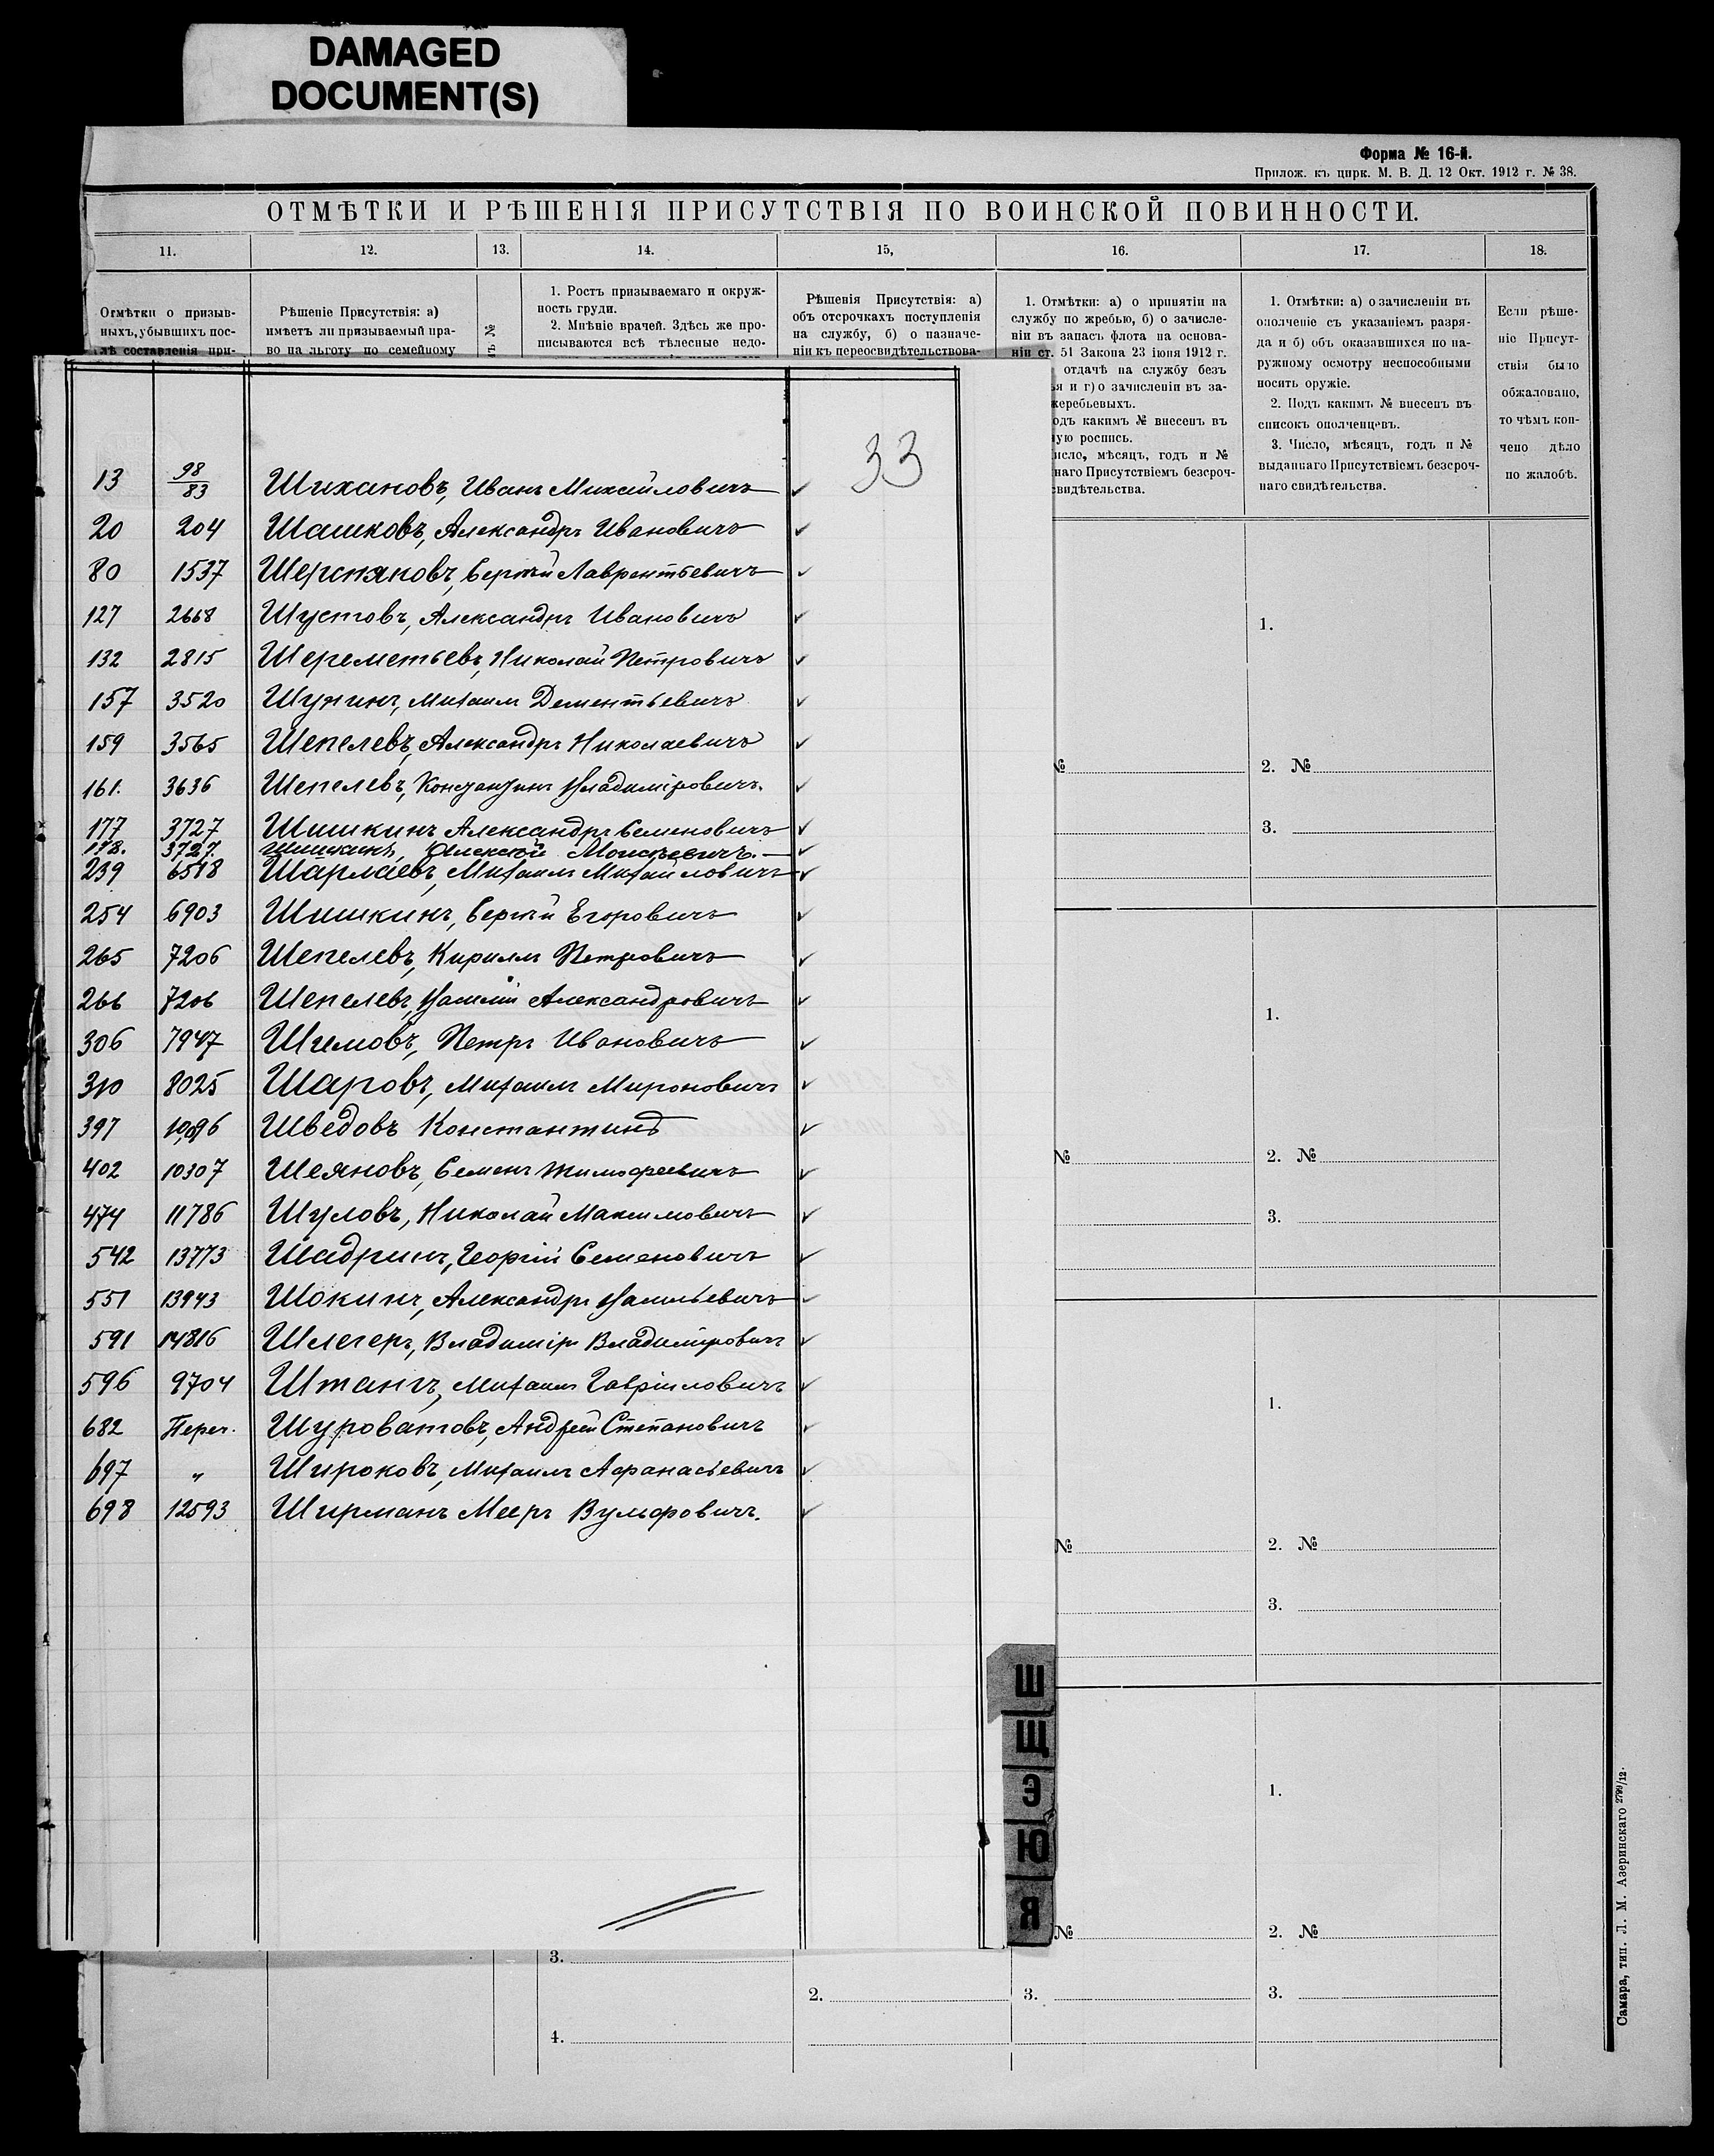 DAMAGED
DOCUMENT(S)
Форма № 16-й.
Прилож. къ цирк. М. В. Д. 12 Окт. 1912 г. № 38.
ОТМѢТКИ И РѢШЕНІЯ ПРИСУТСТВІЯ ПО ВОИНСКОЙ ПОВИННОСТИ.
11. 12. 13. 14. 15, 16. 17. 18.
Отмѣтки о призыв-
ныхъ, убывшихъ пос-
лѣ составленія при-
Рѣшеніе Присутствія: а)
имѣетъ ли призываемый пра-
во на льготу по семейному
№
1. Ростъ призываемаго и окруж-
ность груди.
2. Мнѣніе врачей. Здѣсь же про-
писываются всѣ тѣлесные недо-
Рѣшенія Присутствія: а)
объ отсрочкахъ поступленія
на службу, б) о назначе-
ніи къ переосвидѣтельствова-
1. Отмѣтки: а) о принятіи на
службу по жребью, б) о зачисле-
ніи въ запасъ флота на основа-
ніи ст. 51 Закона 23 іюня 1912 г.
отдачѣ на службу безъ
ья и г) о зачисленіи въ за-
жеребьевыхъ.
одъ какимъ № внесенъ въ
ую роспись.
исло, мѣсяцъ, годъ и №
наго Присутствіемъ безсроч-
свидѣтельства.
1. Отмѣтки: а) о зачисленіи въ
ополченіе съ указаніемъ разря-
да и б) объ оказавшихся по на-
ружному осмотру неспособными
носить оружіе.
2. Подъ какимъ № внесенъ въ
списокъ ополченцевъ.
3. Число, мѣсяцъ, годъ и №
выданнаго Присутствіемъ безсроч-
наго свидѣтельства.
Если рѣше-
ніе Присут-
ствія было
обжаловано,
то чѣмъ кон-
чено дѣло
по жалобѣ.
33
13 98/83 Шихановъ, Иванъ Михайловичъ
20 204 Шашковъ, Александръ Ивановичъ
80 1537 Шерстяновъ, Сергѣй Лаврентьевичъ
127 2668 Шустовъ, Александръ Ивановичъ
132 2815 Шереметьевъ, Николай Петровичъ
157 3520 Шунинъ, Михаилъ Дементьевичъ
159 3565 Шепелевъ, Александръ Николаевичъ
161. 3636 Шепелевъ, Константинъ Владиміровичъ.
177 3727 Шишкинъ Александръ Семеновичъ
178. 3727. Шишкинъ, Алексѣй Моисѣевичъ.
239 6518 Шарлаевъ, Михаилъ Михайловичъ
254 6903 Шишкинъ, Сергѣй Егоровичъ
265 7206 Шепелевъ, Кириллъ Петровичъ
266 7206 Шепелевъ, Василій Александровичъ
306 7947 Шимовъ, Петръ Ивановичъ
310 8025 Шаровъ, Михаилъ Мироновичъ
397 Шведовъ Константинъ
402 10307 Шеяновъ, Семенъ Тимофеевичъ
474 11786 Шуловъ, Николай Максимовичъ
542 13773 Шадринъ, Георгій Семеновичъ
551 13943 Шокинъ, Александръ Васильевичъ
591 14816 Шлегеръ, Владиміръ Владиміровичъ
596 9704 Штангъ, Михаилъ Гавріиловичъ
682 Переч. Шуроватовъ, Андрей Степановичъ
697 " Широковъ, Михаилъ Афанасьевичъ
698 12593 Ширманъ Мееръ Вульфовичъ.
Ш
Щ
Э
Ю
Я
1.
№ 2. №
3.
1.
№ 2. №
3.
1.
№ 2. №
3.
1.
№ 2. №
3.
2. 3. 3.
4.
Самара, тип. Л. М. Азеринскаго 2799/12.